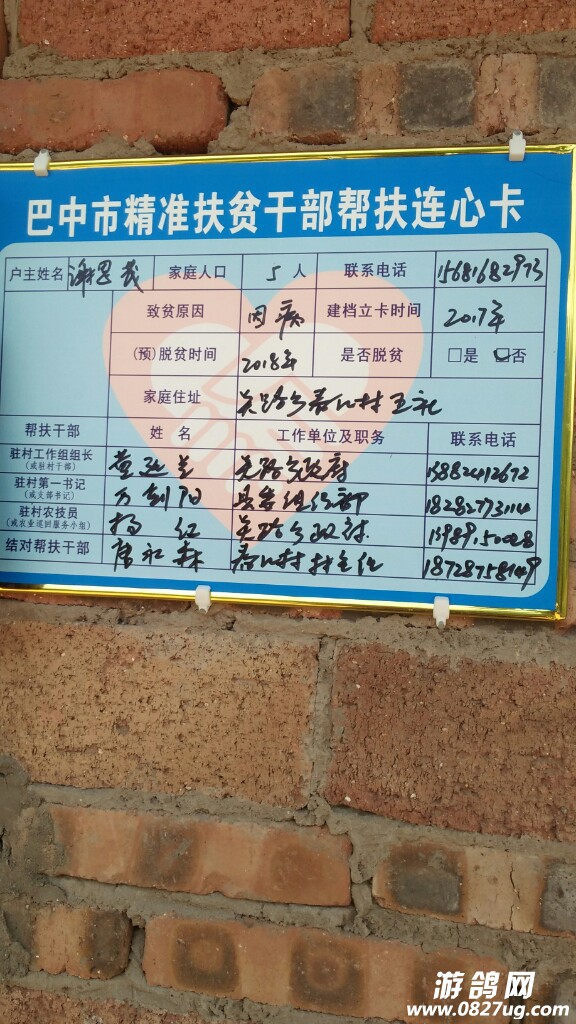 巴中市精准扶贫干部帮扶连心卡
户主姓名 谢思 家庭人口 5人 联系电话 15681682973
致贫原因 因病 建档立卡时间 2017年
(预)脱贫时间 2018年 是否脱贫 □是 ☑否
家庭住址 关路乡 村 社
帮扶干部 姓名 工作单位及职务 联系电话
驻村工作组组长 关路乡政府 15882412672
(或驻村干部)
驻村第一书记 万剑 县委组织部
(或支部书记)
驻村农技员 杨红 关路乡政府
(或农业巡回服务小组)
结对帮扶干部 唐永森 村村主任
游鸽网
www.0827ug.com